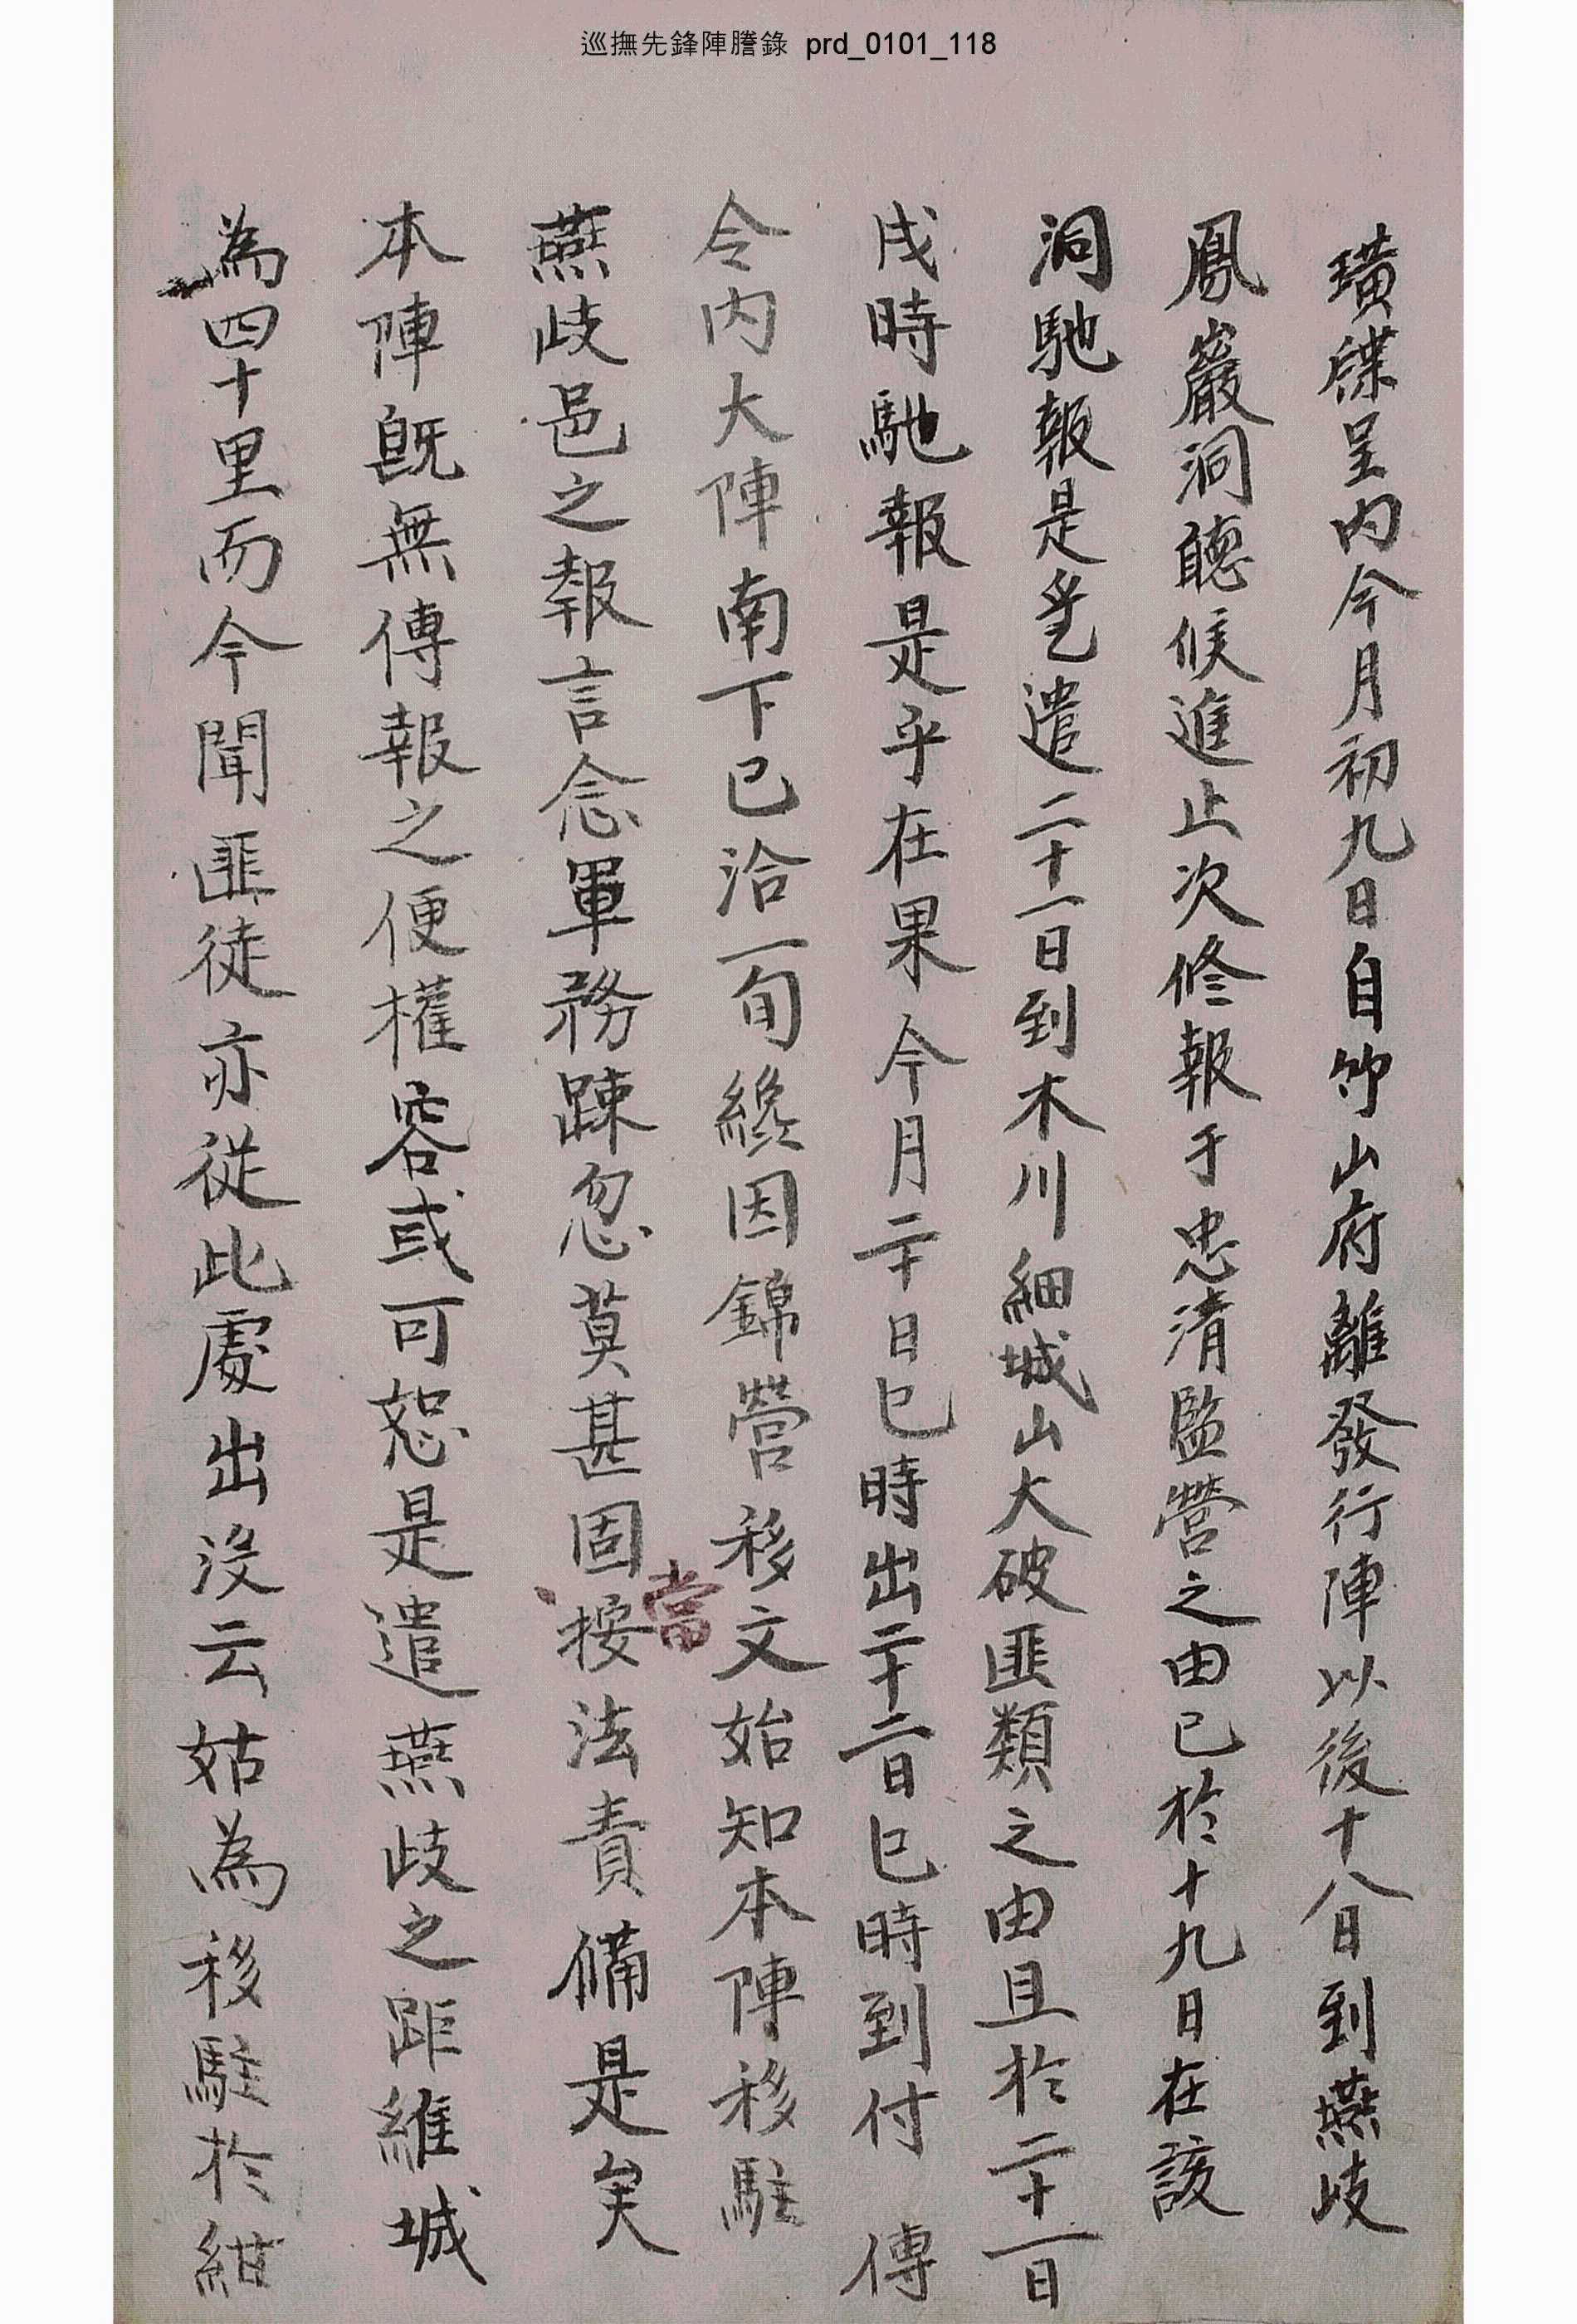 巡撫先鋒陣謄錄 prd_0101_118
璜牒呈内今月初九日自竹山府離發行陣以後十八日到燕岐
鳳巖洞聽候進止次修報于忠清監營之由已於十九日在該
洞馳報是乎遣二十一日到木川細城山大破匪類之由且於二十一日
戌時馳報是乎在果今月二十日巳時出二十二日巳時到付 傳
令内大陣南下已洽一旬纔因錦營移文始知本陣移駐
燕岐邑之報言念軍務踈忽莫甚固按法責備是矣
當
本陣旣無傳報之便權容或可恕是遣燕岐之距維城
為四十里而今聞匪徒亦從此處出沒云姑為移駐於紺